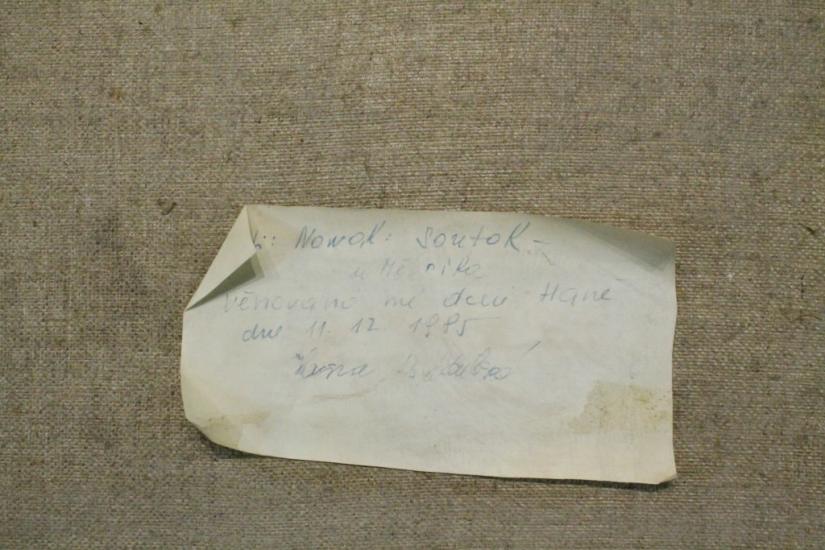 Nowak: Soutok -
u Mělníka
Věnováno mé dceři Haně
dne 11. 12. 1985